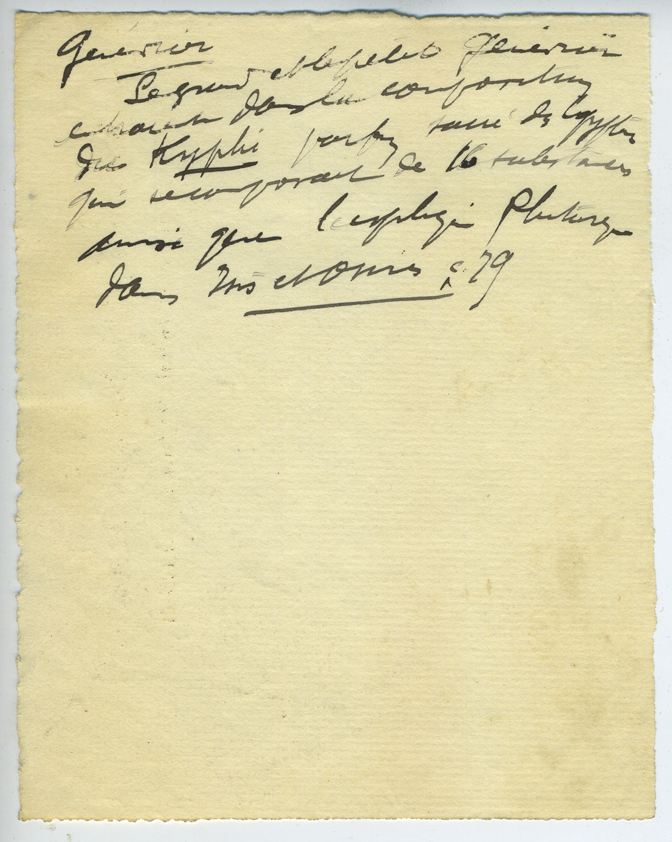 Genévrier
Le grand et le petit Genévrier
entraient dans la composition
du Kyphi parfum sacré des Egyptiens
qui se composait de 16 substances
ainsi que l'explique Plutarque
dans Isis et Osiris c. 79